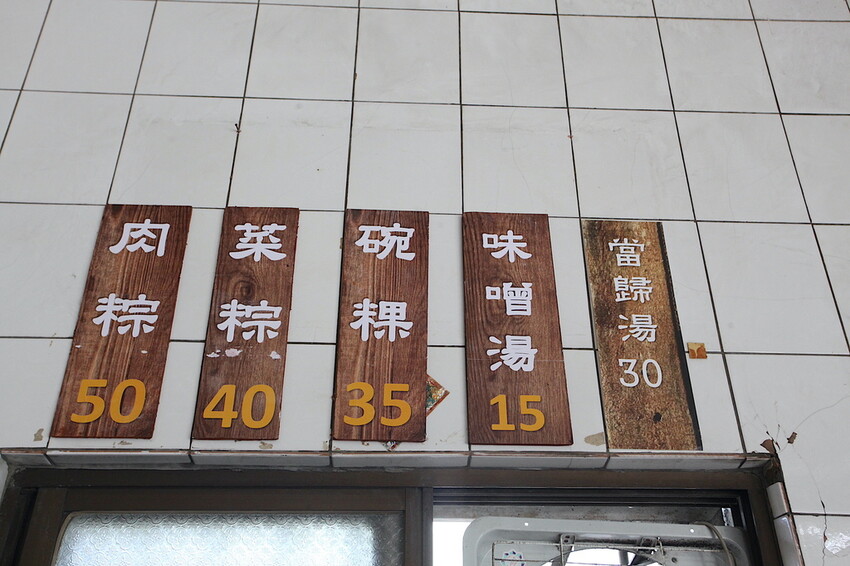 肉粽
50
菜粽
40
碗粿
35
味噌湯
15
當歸湯
30